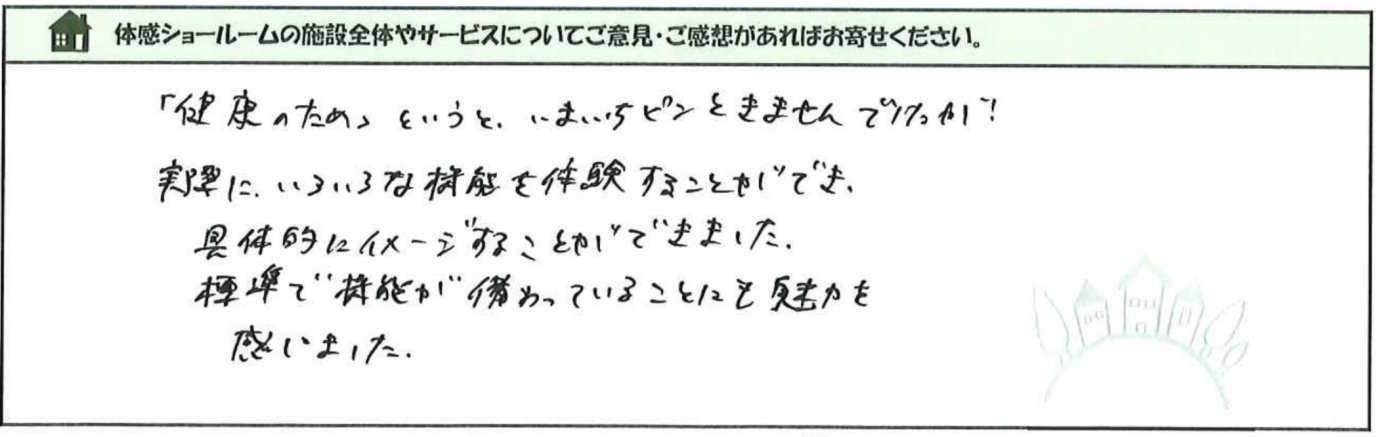 体感ショールームの施設全体やサービスについてご意見・ご感想があればお寄せください。
「健康のため」というと、いまいちピンときませんでしたが!
実際に、いろいろな機能を体験することができ、
具体的にイメージすることができました。
標準で機能が備わっていることにも魅力を
感じました。